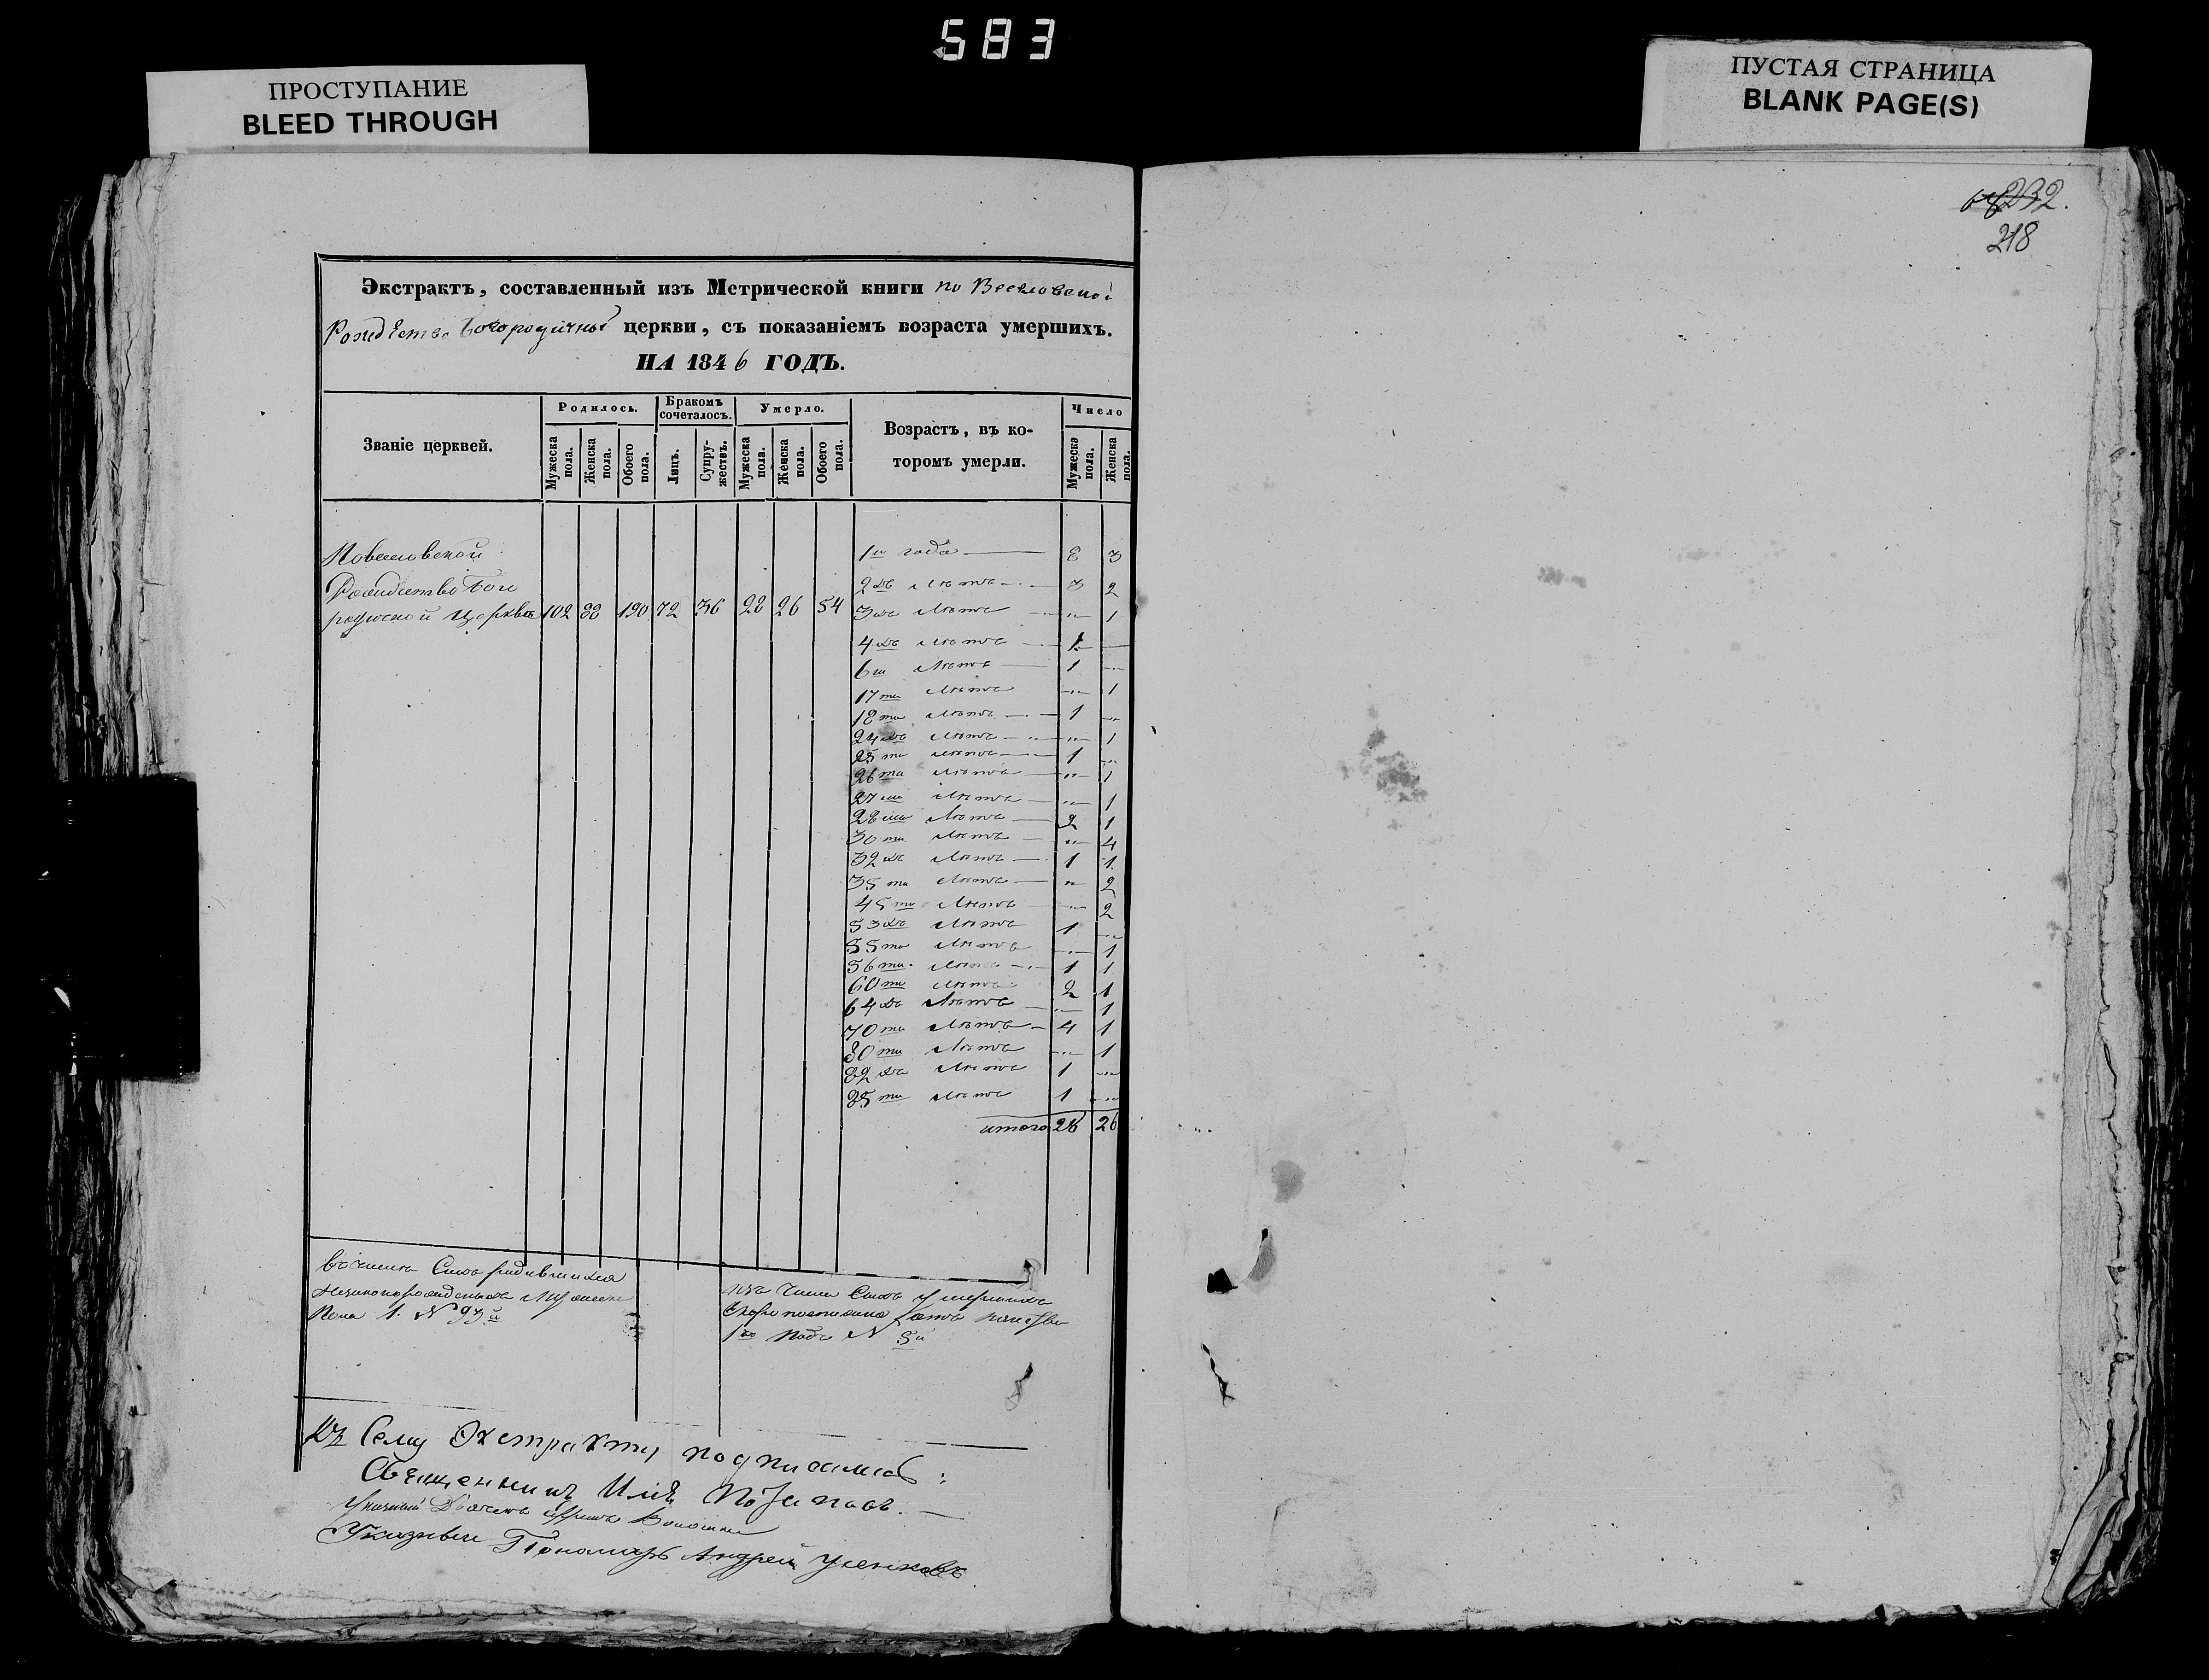 583
ПРОСТУПАНИЕ
BLEED THROUGH
ПУСТАЯ СТРАНИЦА
BLANK PAGE(S)
232.
218
Экстрактъ, составленный изъ Метрической книги по
Рождество Богородичной церкви, съ показаніемъ возраста умершихъ.
НА 1846 ГОДЪ.
Званіе церквей.
Родилось.
Бракомъ сочеталось.
Умерло.
Возрастъ, въ которомъ умерли.
Число
Мужеска пола.
Женска пола.
Обоего пола.
Лицъ.
Супружествъ.
Мужеска пола.
Женска пола.
Обоего пола.
Мужеска пола.
Женска пола.
Рождество Бого
родичной Церкви 102 88 190 72 36 28 26 54
1го года 8 3
2хъ лѣтъ 3 2
3хъ лѣтъ „ 1
4хъ лѣтъ 1 „
6ти лѣтъ 1 „
17ти лѣтъ „ 1
18ти лѣтъ 1 „
24хъ лѣтъ „ 1
25ти лѣтъ 1 „
26ти лѣтъ „ 1
27ми лѣтъ „ 1
28ми лѣтъ 2 1
30ти лѣтъ „ 4
32хъ лѣтъ 1 1
35ти лѣтъ „ 2
45ти лѣтъ „ 2
53хъ лѣтъ 1 „
55ти лѣтъ „ 1
56ти лѣтъ 1 1
60ти лѣтъ 2 1
64хъ лѣтъ „ 1
70ти лѣтъ 4 1
80ти лѣтъ „ 1
82хъ лѣтъ 1 „
85ти лѣтъ 1 „
итого 28 26
Въ числѣ сихъ родившихся
незаконорожденныхъ мужеска
пола 1. № 93й
изъ числа сихъ умершихъ
скоропостижно
№ 5й
Къ сему Экстракту подписались:
Священникъ Илія
Дьячекъ
Указный Пономарь Андрей